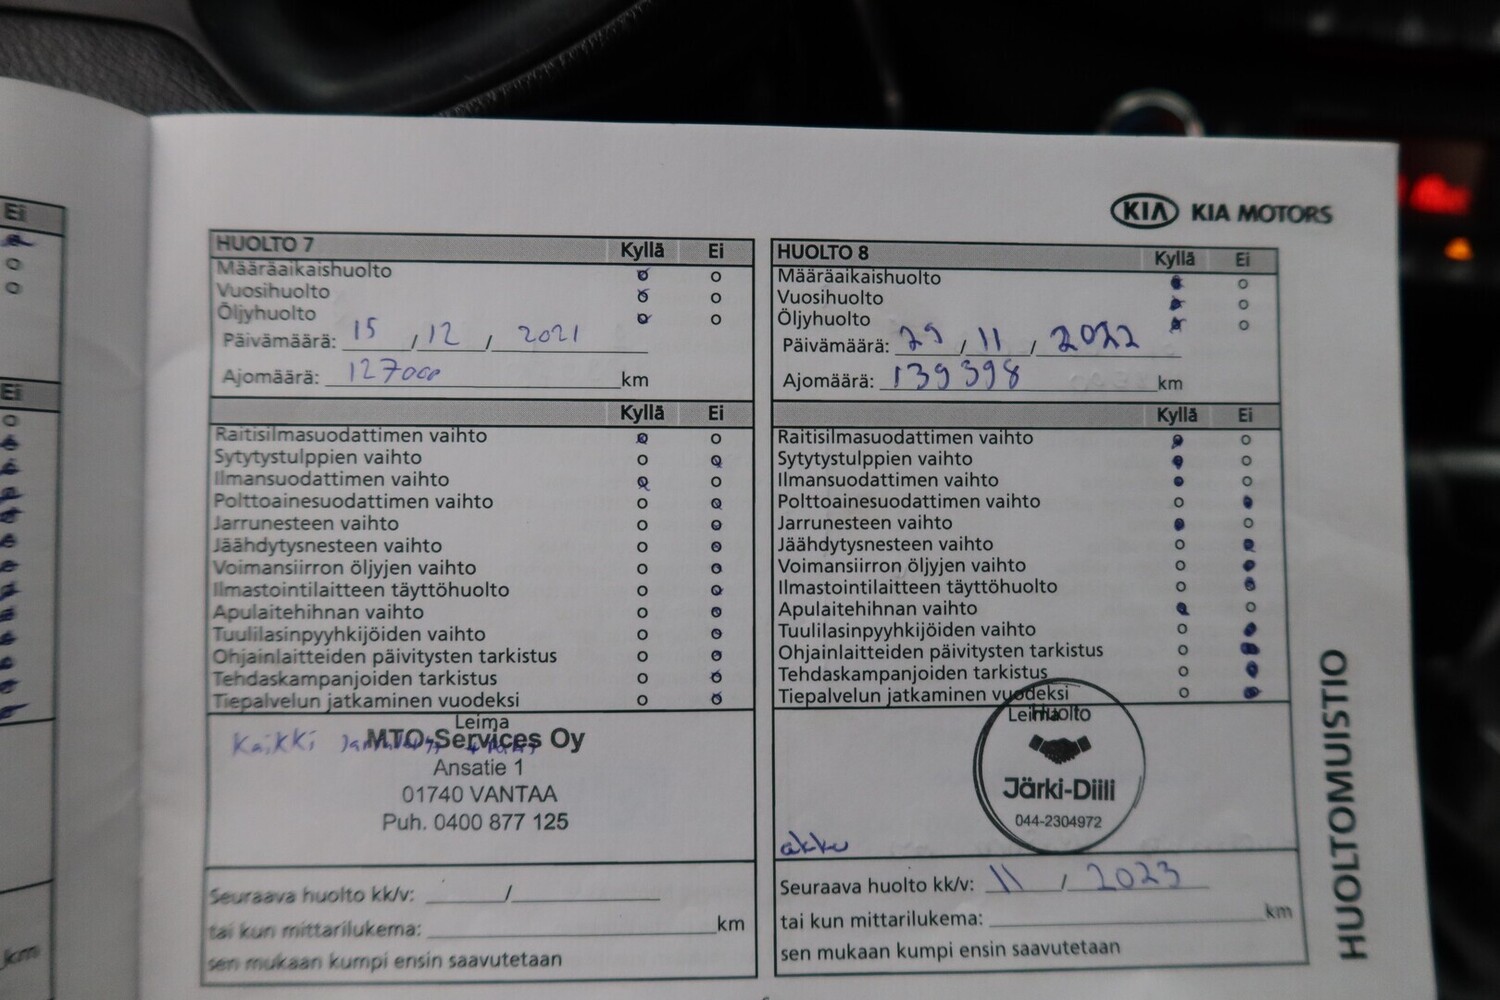 Ei
Ei
km
KIA KIA MOTORS
HUOLTO 7 Kyllä Ei
Määräaikaishuolto
Vuosihuolto
Öljyhuolto
Päivämäärä: 15 / 12 / 2021
Ajomäärä: 127000 km
Kyllä Ei
Raitisilmasuodattimen vaihto
Sytytystulppien vaihto
Ilmansuodattimen vaihto
Polttoainesuodattimen vaihto
Jarrunesteen vaihto
Jäähdytysnesteen vaihto
Voimansiirron öljyjen vaihto
Ilmastointilaitteen täyttöhuolto
Apulaitehihnan vaihto
Tuulilasinpyyhkijöiden vaihto
Ohjainlaitteiden päivitysten tarkistus
Tehdaskampanjoiden tarkistus
Tiepalvelun jatkaminen vuodeksi
Leima
Kaikki
MTO-Services Oy
Ansatie 1
01740 VANTAA
Puh. 0400 877 125
Seuraava huolto kk/v: /
tai kun mittarilukema: km
sen mukaan kumpi ensin saavutetaan
HUOLTO 8 Kyllä Ei
Määräaikaishuolto
Vuosihuolto
Öljyhuolto
Päivämäärä: 29 / 11 / 2022
Ajomäärä: 139398 km
Kyllä Ei
Raitisilmasuodattimen vaihto
Sytytystulppien vaihto
Ilmansuodattimen vaihto
Polttoainesuodattimen vaihto
Jarrunesteen vaihto
Jäähdytysnesteen vaihto
Voimansiirron öljyjen vaihto
Ilmastointilaitteen täyttöhuolto
Apulaitehihnan vaihto
Tuulilasinpyyhkijöiden vaihto
Ohjainlaitteiden päivitysten tarkistus
Tehdaskampanjoiden tarkistus
Tiepalvelun jatkaminen vuodeksi
Leima
Huolto
Järki-Diili
044-2304972
akku
Seuraava huolto kk/v: 11 / 2023
tai kun mittarilukema: km
sen mukaan kumpi ensin saavutetaan
HUOLTOMUISTIO